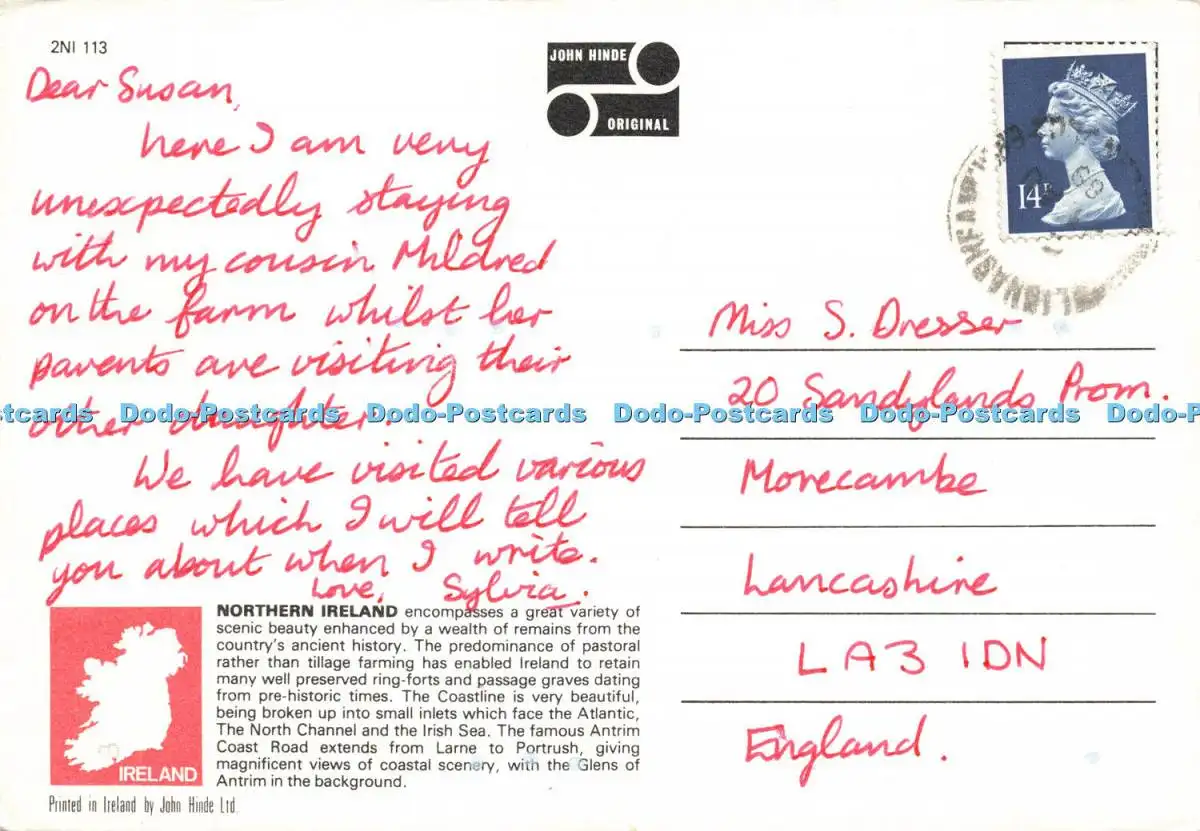 2NI 113
JOHN HINDE
ORIGINAL
14P
Dear Susan,
here I am very
unexpectedly staying
with my cousin Mildred
on the farm whilst her
parents are visiting their
other daughter.
We have visited various
places which I will tell
you about when I write.
Love, Sylvia.
Miss S. Dresser
20 Sandylands Prom.
Morecambe
Lancashire
LA3 1DN
England.
Dodo-Postcards Dodo-Postcards Dodo-Postcards Dodo-Postcards
NORTHERN IRELAND encompasses a great variety of
scenic beauty enhanced by a wealth of remains from the
country's ancient history. The predominance of pastoral
rather than tillage farming has enabled Ireland to retain
many well preserved ring-forts and passage graves dating
from pre-historic times. The Coastline is very beautiful,
being broken up into small inlets which face the Atlantic,
The North Channel and the Irish Sea. The famous Antrim
Coast Road extends from Larne to Portrush, giving
magnificent views of coastal scenery, with the Glens of
Antrim in the background.
IRELAND
Printed in Ireland by John Hinde Ltd.